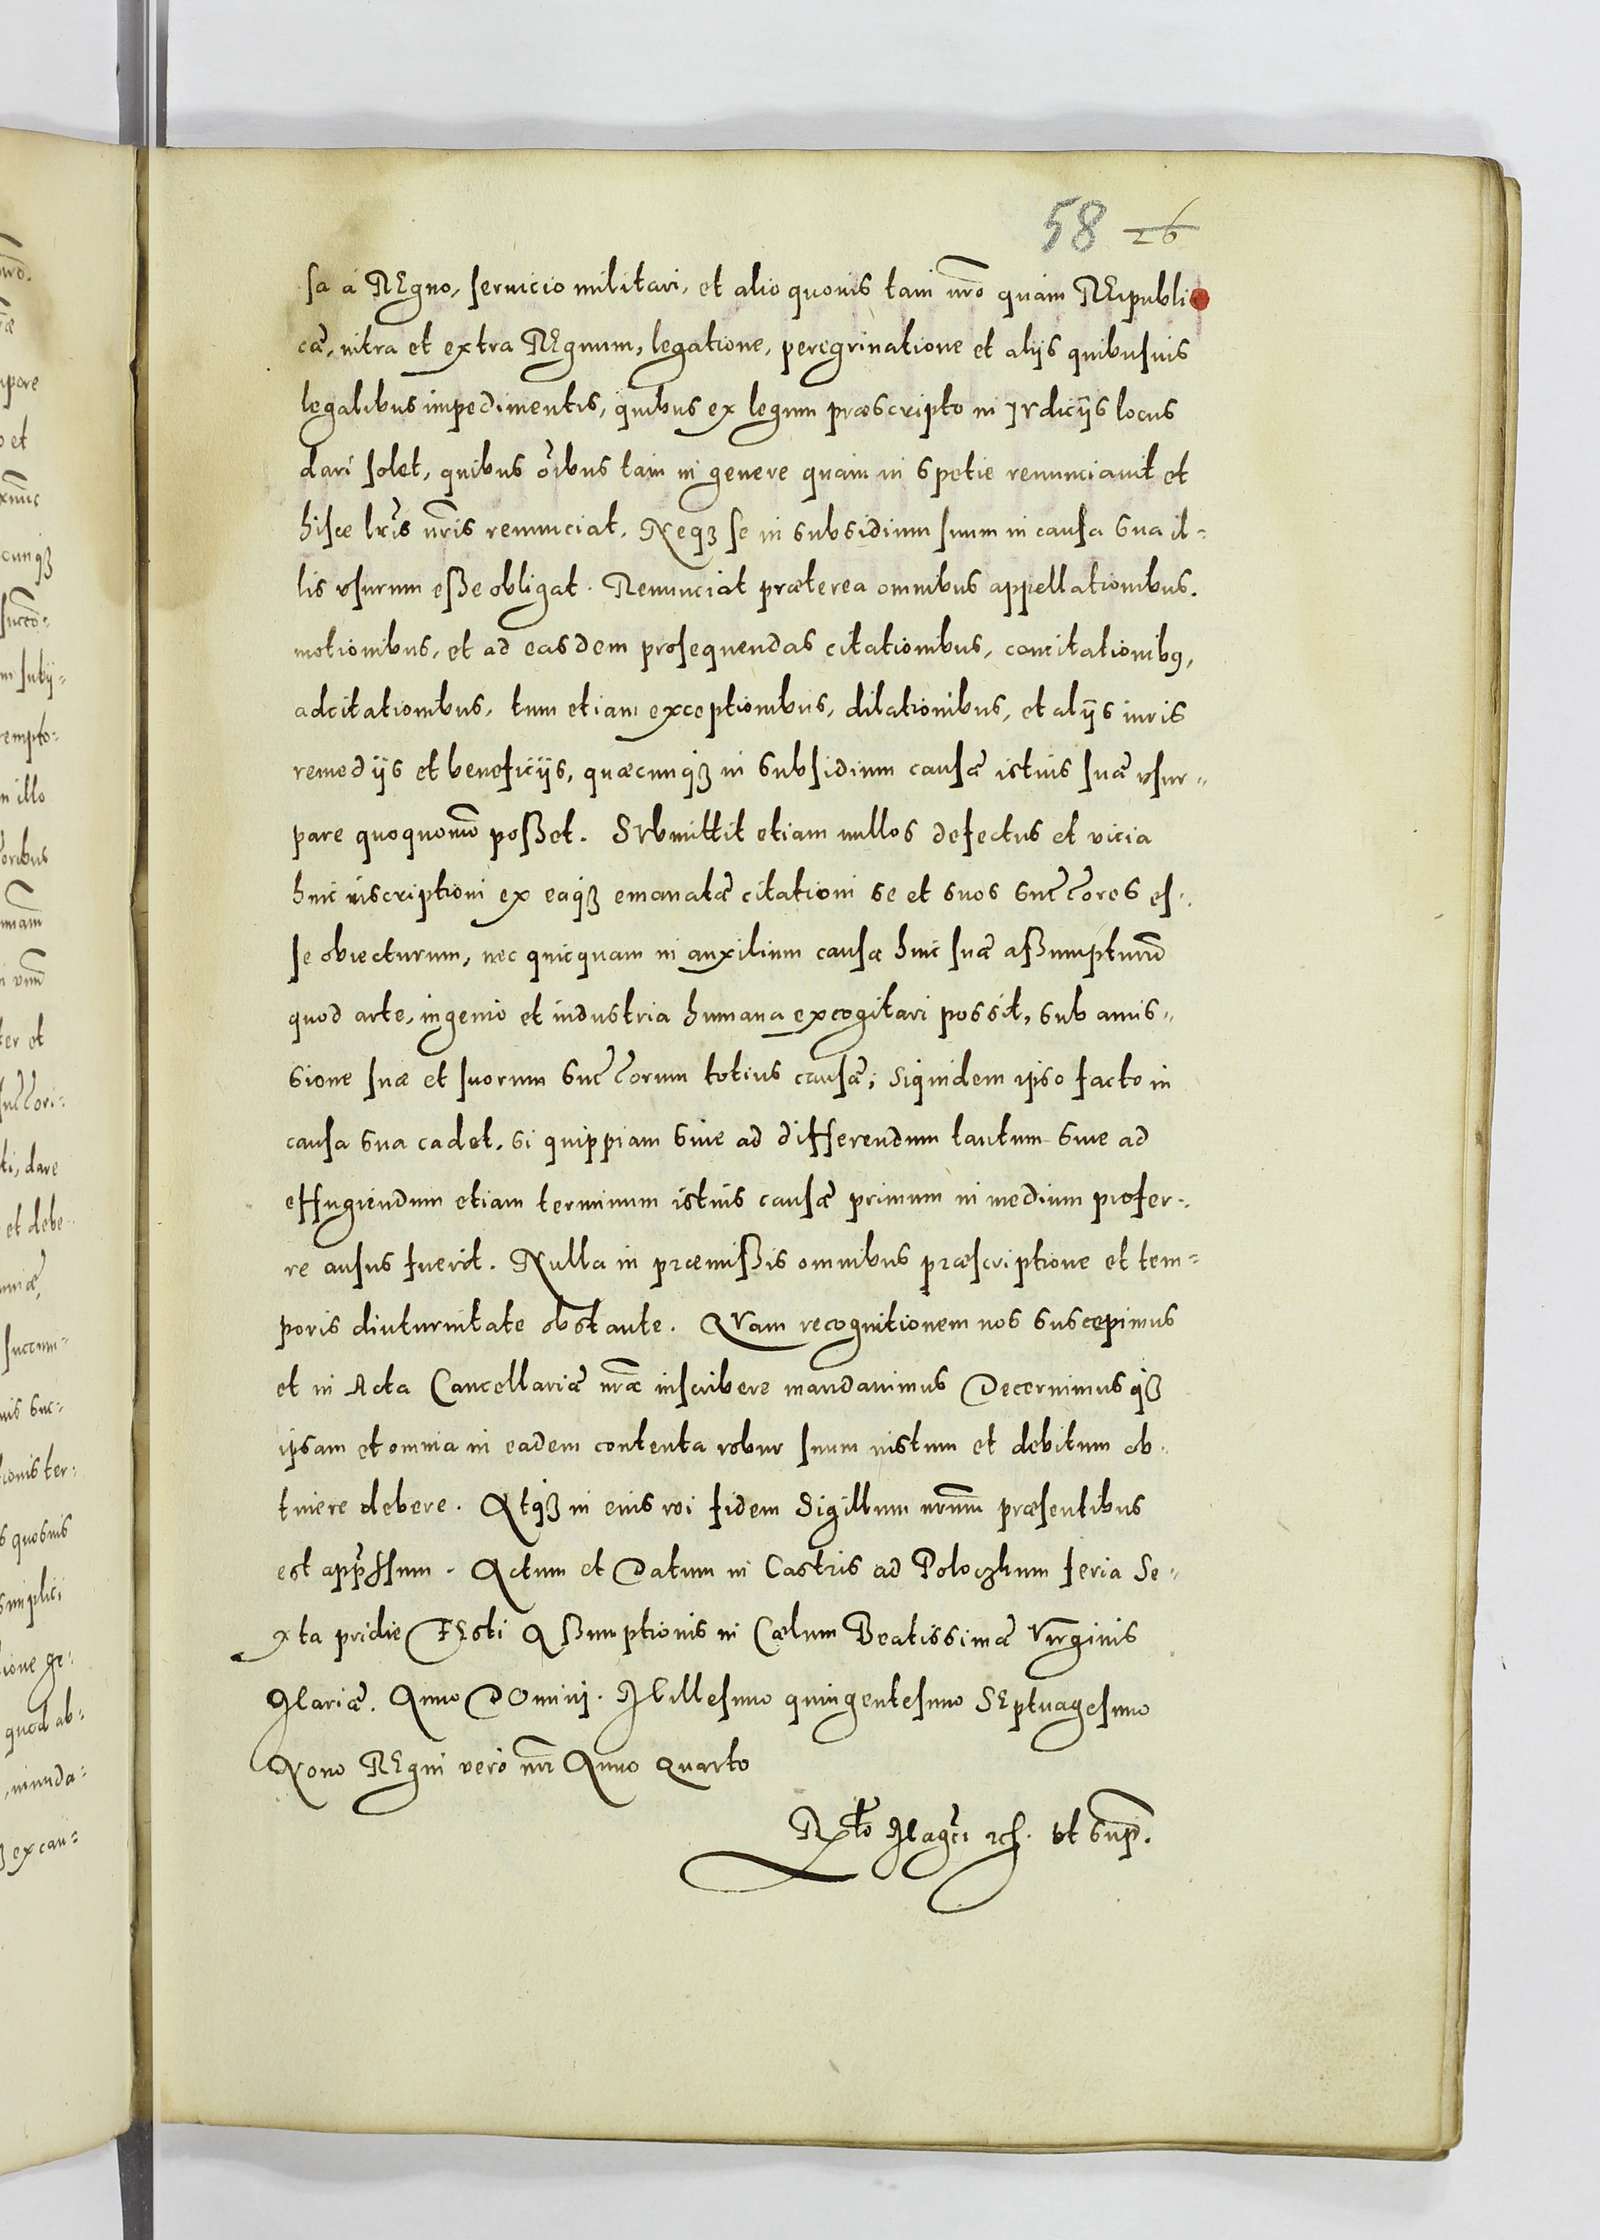 58 26
sa à REgno, seruicio militari, et alio quouis tam nr̃o quam REipubli
cæ, intra et extra REgnum, legatione, peregrinatione et alijs quibusuis
legalibus impedimentis, quibus ex legum præscripto in IVdicijs locus
dari solet, quibus õibus tam in genere quam in spetie renunciauit et
hisce lr̃is nr̃is renunciat. Neqꝫ se in subsidium suum in causa sua il-
lis vsurum eße obligat. Renunciat præterea omnibus appellationibus.
motionibus, et ad easdem prosequendas citationibus, concitationibꝰ,
adcitationibus, tum etiam exceptionibus, dilationibus, et alijs iuris
remedijs et beneficijs, quæcunqꝫ in subsidium causæ istius suæ vsur-
pare quoquomõ poßet. SVbmittit etiam nullos defectus et vicia
huic inscriptioni ex eaqꝫ emanatæ citationi se et suos suc̃c̃ores es-
se obiecturum, nec quicquam in auxilium causæ huic suæ aßumpturũ
quod arte, ingenio et industria humana excogitari possit, sub amis-
sione suæ et suorum suc̃c̃orum totius causæ; siquidem ipso facto in
causa sua cadet, si quippiam siue ad differendum tantum siue ad
effugiendum etiam terminum istius causæ primum in medium profer-
re ausus fuerit. Nulla in præmißis omnibus præscriptione et tem-
poris diuturnitate obstante. QVam recognitionem nos suscepimus
et in Acta Cancellariæ nr̃æ inscribere mandauimus Decernimusqꝫ
ipsam et omnia in eadem contenta robur suum iustum et debitum ob-
tinere debere. Atqꝫ in eius rei fidem Sigillum nr̃um præsentibus
est appr̃ssum. Actum et Datum in Castris ad Poloczkum feria Se-
xta pridie FEsti Aßumptionis in Cælum Beatissimæ Virginis
Mariæ. Anno DOmini. Millesimo quingentesimo SEptuagesimo
Nono REgni vero nr̃i Anno quarto
R̃to Mag̃ci ꝛc. vt sup̃.